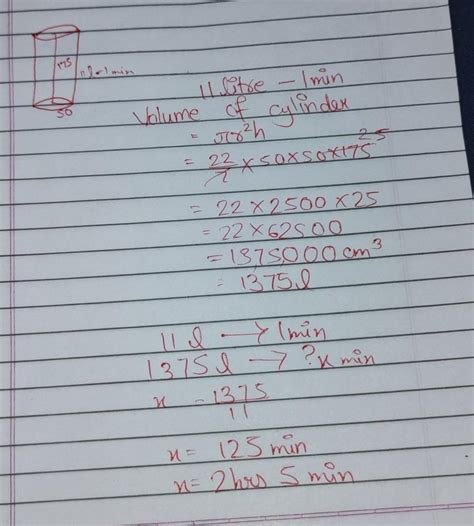 175
11 l → 1 min
50
11 litre - 1 min
Volume of cylinder
= πr²h
= 22/7 × 50 × 50 × 175 25
= 22 × 2500 × 25
= 22 × 62500
= 1375000 cm³
= 1375 l
11 l → 1 min
1375 l → ? x min
x = 1375/11
x = 125 min
x = 2 hrs 5 min